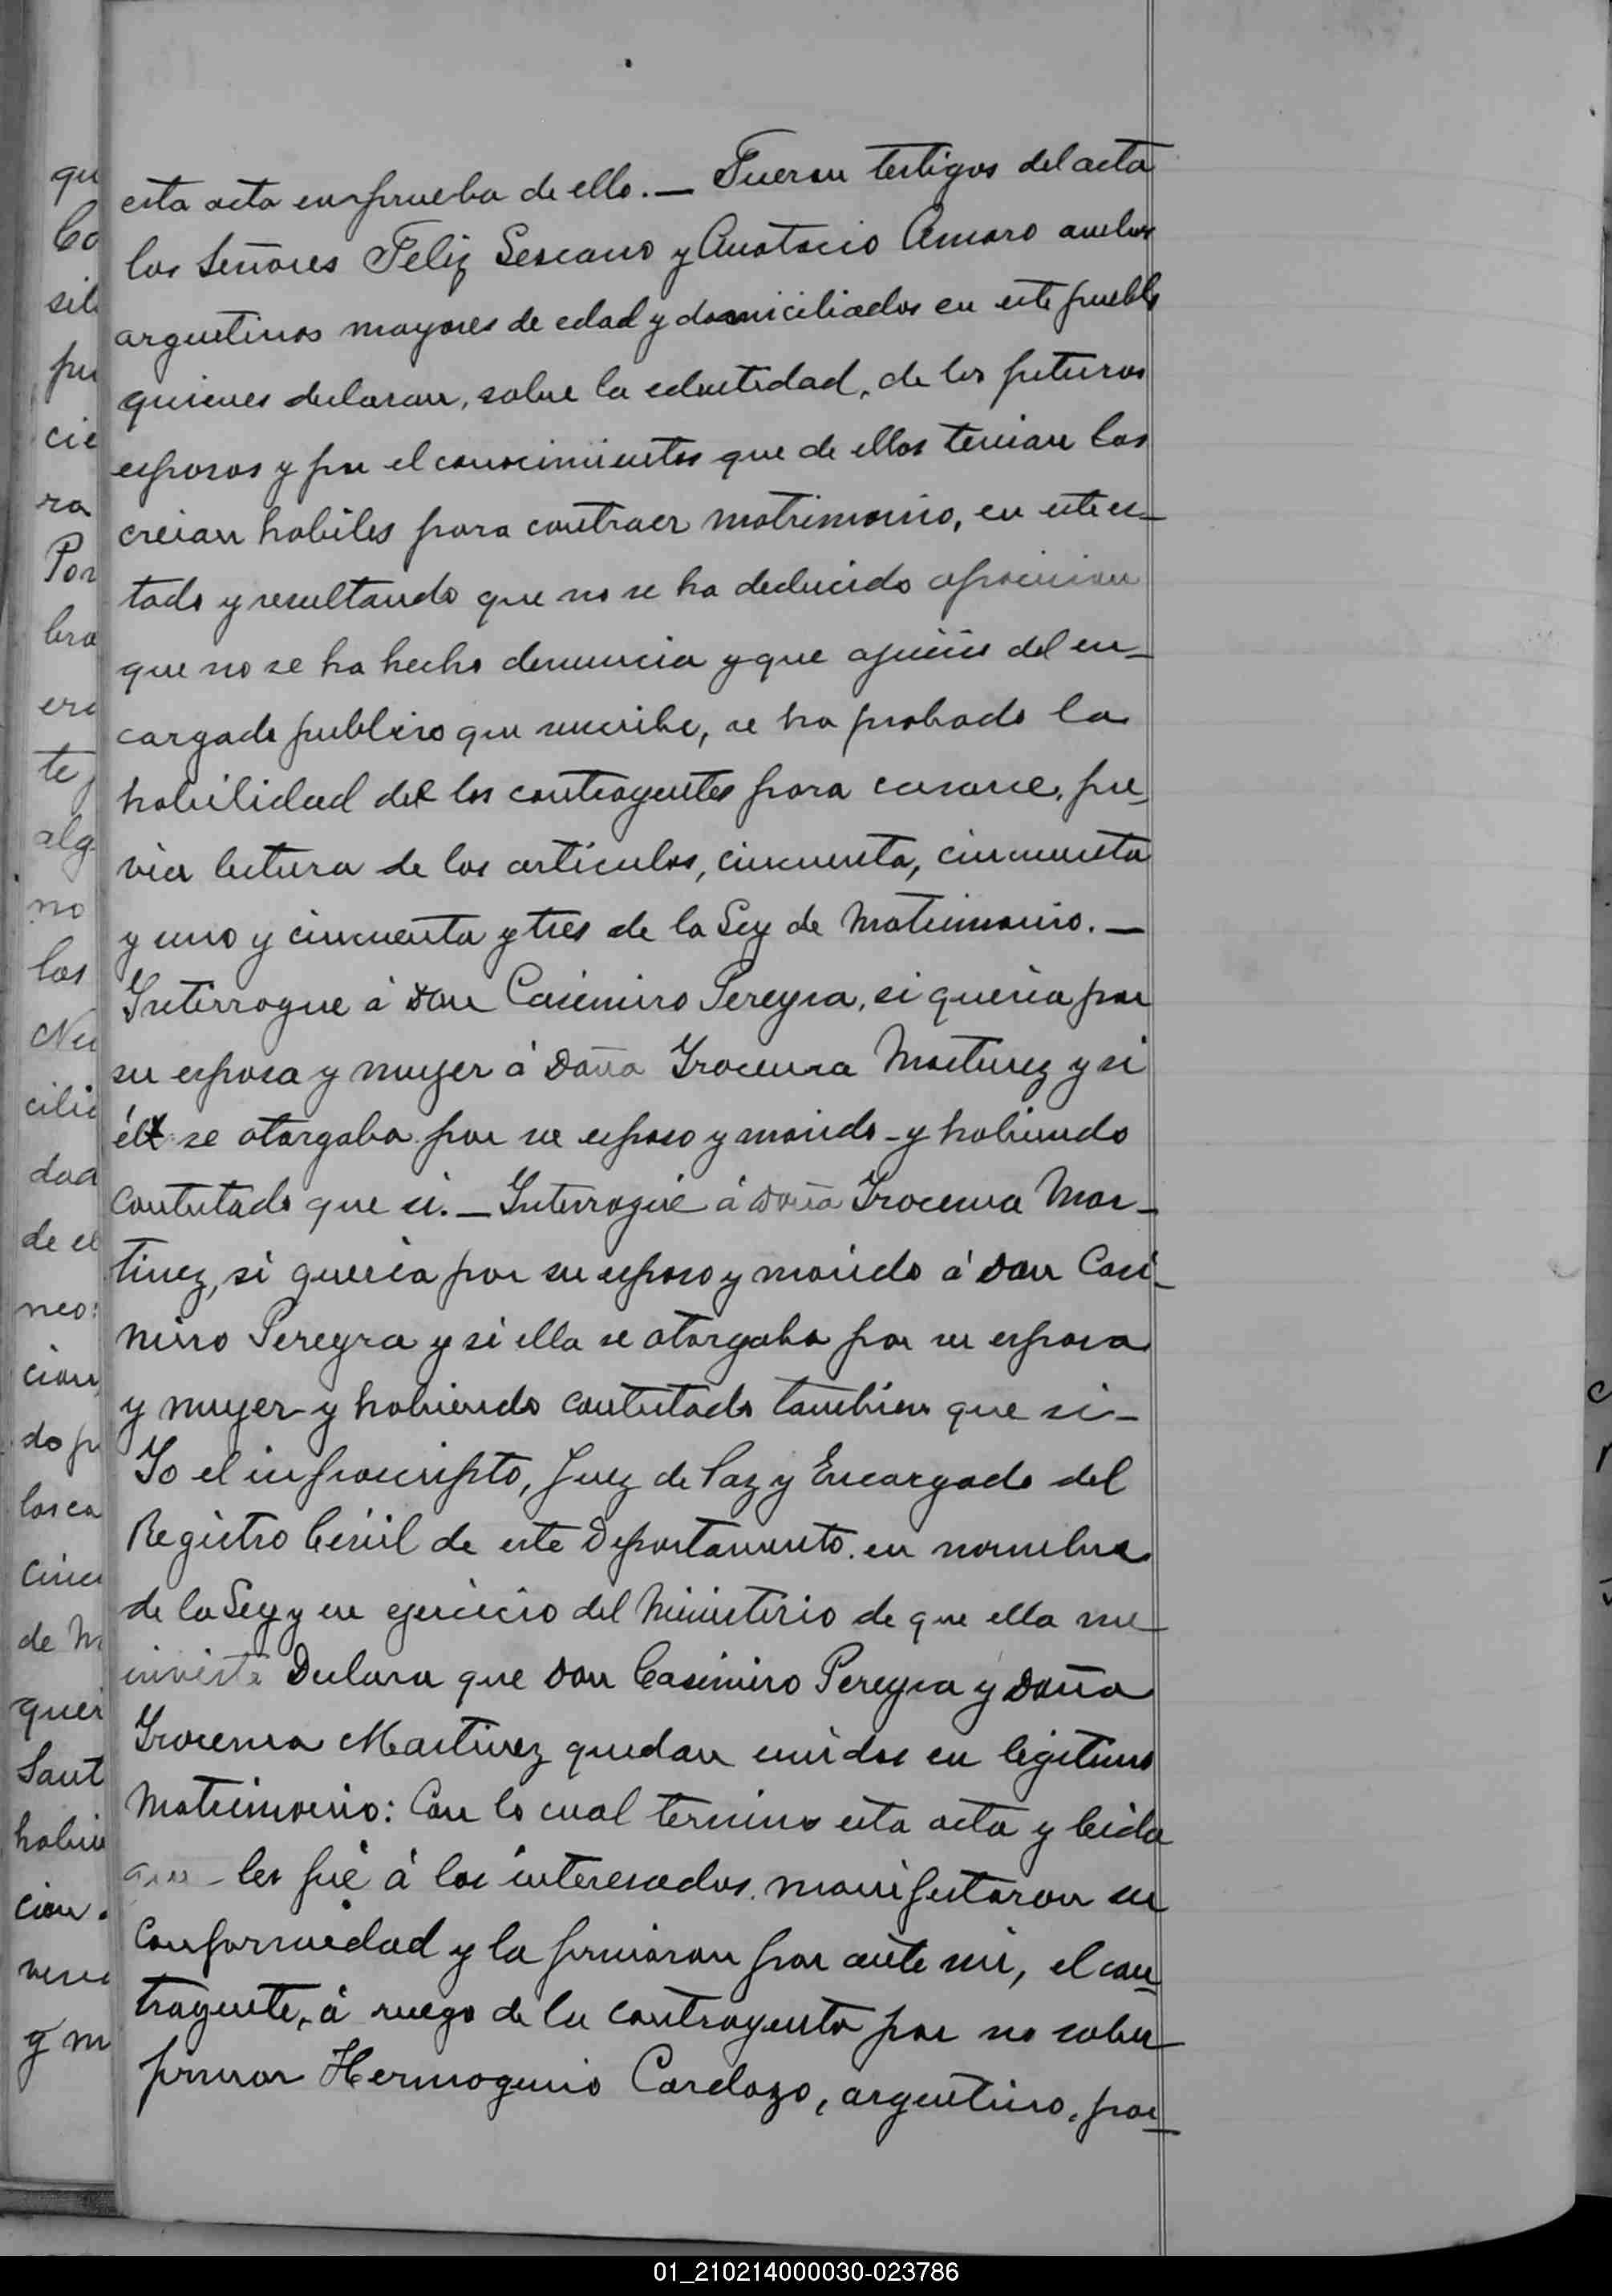 esta acta en prueba de ello. — Fueron testigos del acta
los Señores Feliz Lescano y Anatacio Amaro ambos
argentinos mayores de edad y domiciliados en este pueblo
quienes declaran, sobre la edentidad, de los futuros
esposos y por el conocimientos que de ellos tenian los
creian habiles para contraer matrimonio, en este es-
tado y resultando que no se ha deducido oposicion
que no se ha hecho denuncia y que ajuicio del en-
cargado publico que suscribe, se ha probado la
habilidad del los contrayentes para casarse, pre-
via lectura de los articulos, cincuenta, cincuenta
y uno y cincuenta y tres de la Ley de Matrimonio. —
Interrogue á Don Casimiro Pereyra, si queria por
su esposa y muger á Doña Martinez y si
él se otorgaba por su esposo y marido - y habiendo
contestado que si. — Interrogué á Doña Mar-
tinez, si queria por su esposo y marido á Don Casi-
miro Pereyra y si ella se otorgaba por su esposa
y muger y habiendo contestado tambien que si -
Yo el infrascripto, Juez de Paz y Encargado del
Registro Civil de este Departamento. en nombre
de la Ley y en ejercicio del Ministerio de que ella me
inviste Declara que Don Casimiro Pereyra y Doña
Martinez quedan unidos en legitimo
Matrimonio: Con lo cual termino esta acta y leida
que les fué á los interesados. manifestaron su
conformidad y la firmaron por ante mi, el con-
trayente, á ruego de la contrayenta por no saber
firmar Hermogenio Cardozo, argentino, por
qu
Co
sil
pu
cie
ra
Por
bra
eri
te
alg
no
los
Nu
cili
dad
de el
neo:
cion
do p
los ca
Cinc
de M
quer
Sant
habie
cion.
y m
01_210214000030-023786